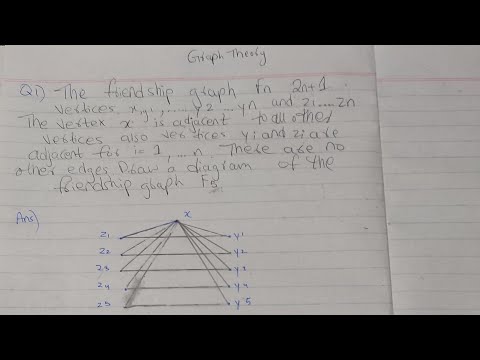 Graph Theory
Q1) The friendship graph Fn 2n+1
vertices x, y1, ..... y2 ... yn and z1.....zn
The vertex x is adjacent to all other
vertices also vertices yi and zi are
adjacent for i = 1, ... n. There are no
other edges. Draw a diagram of the
friendship graph F5.
Ans)
x
z1 y1
z2 y2
z3 y3
z4 y4
z5 y5